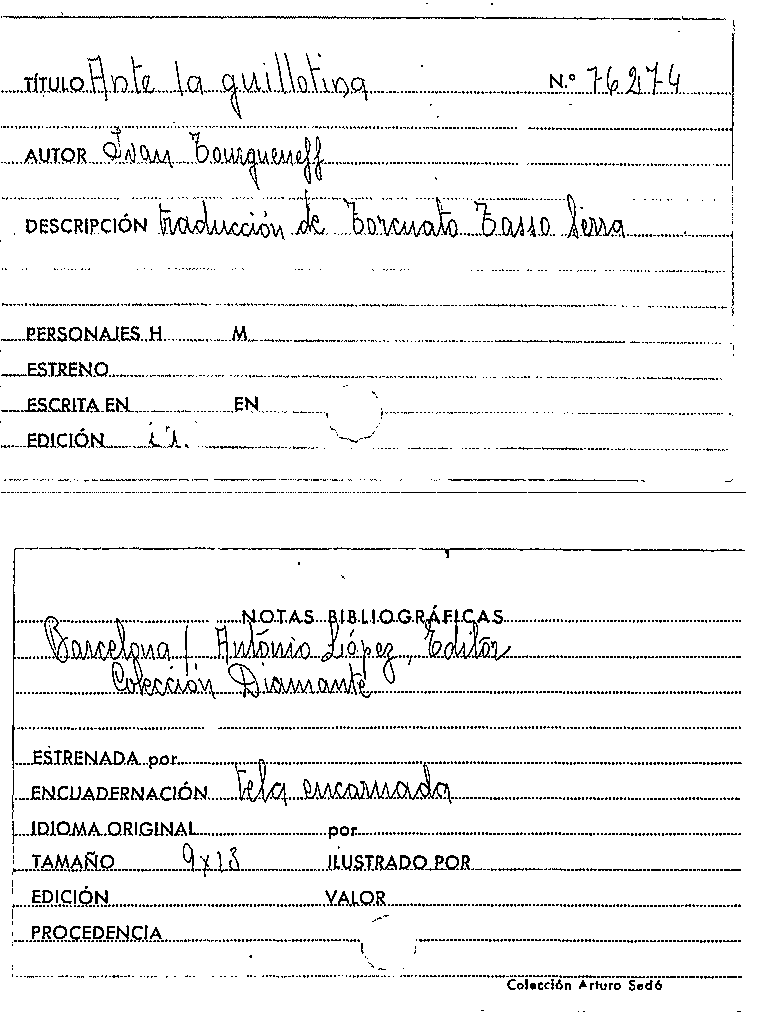 TÍTULO Ante la guillotina N.º 76274
AUTOR Ivan Tourgueneff
DESCRIPCIÓN traducción de Torcuato Tasso Serra
PERSONAJES H. M.
ESTRENO
ESCRITA EN EN
EDICIÓN
NOTAS BIBLIOGRÁFICAS
Barcelona / Antonio López, Editor
Colección Diamante
ESTRENADA por
ENCUADERNACIÓN tela encarnada
IDIOMA ORIGINAL por
TAMAÑO 9x13 ILUSTRADO POR
EDICIÓN VALOR
PROCEDENCIA
Colección Arturo Sedó